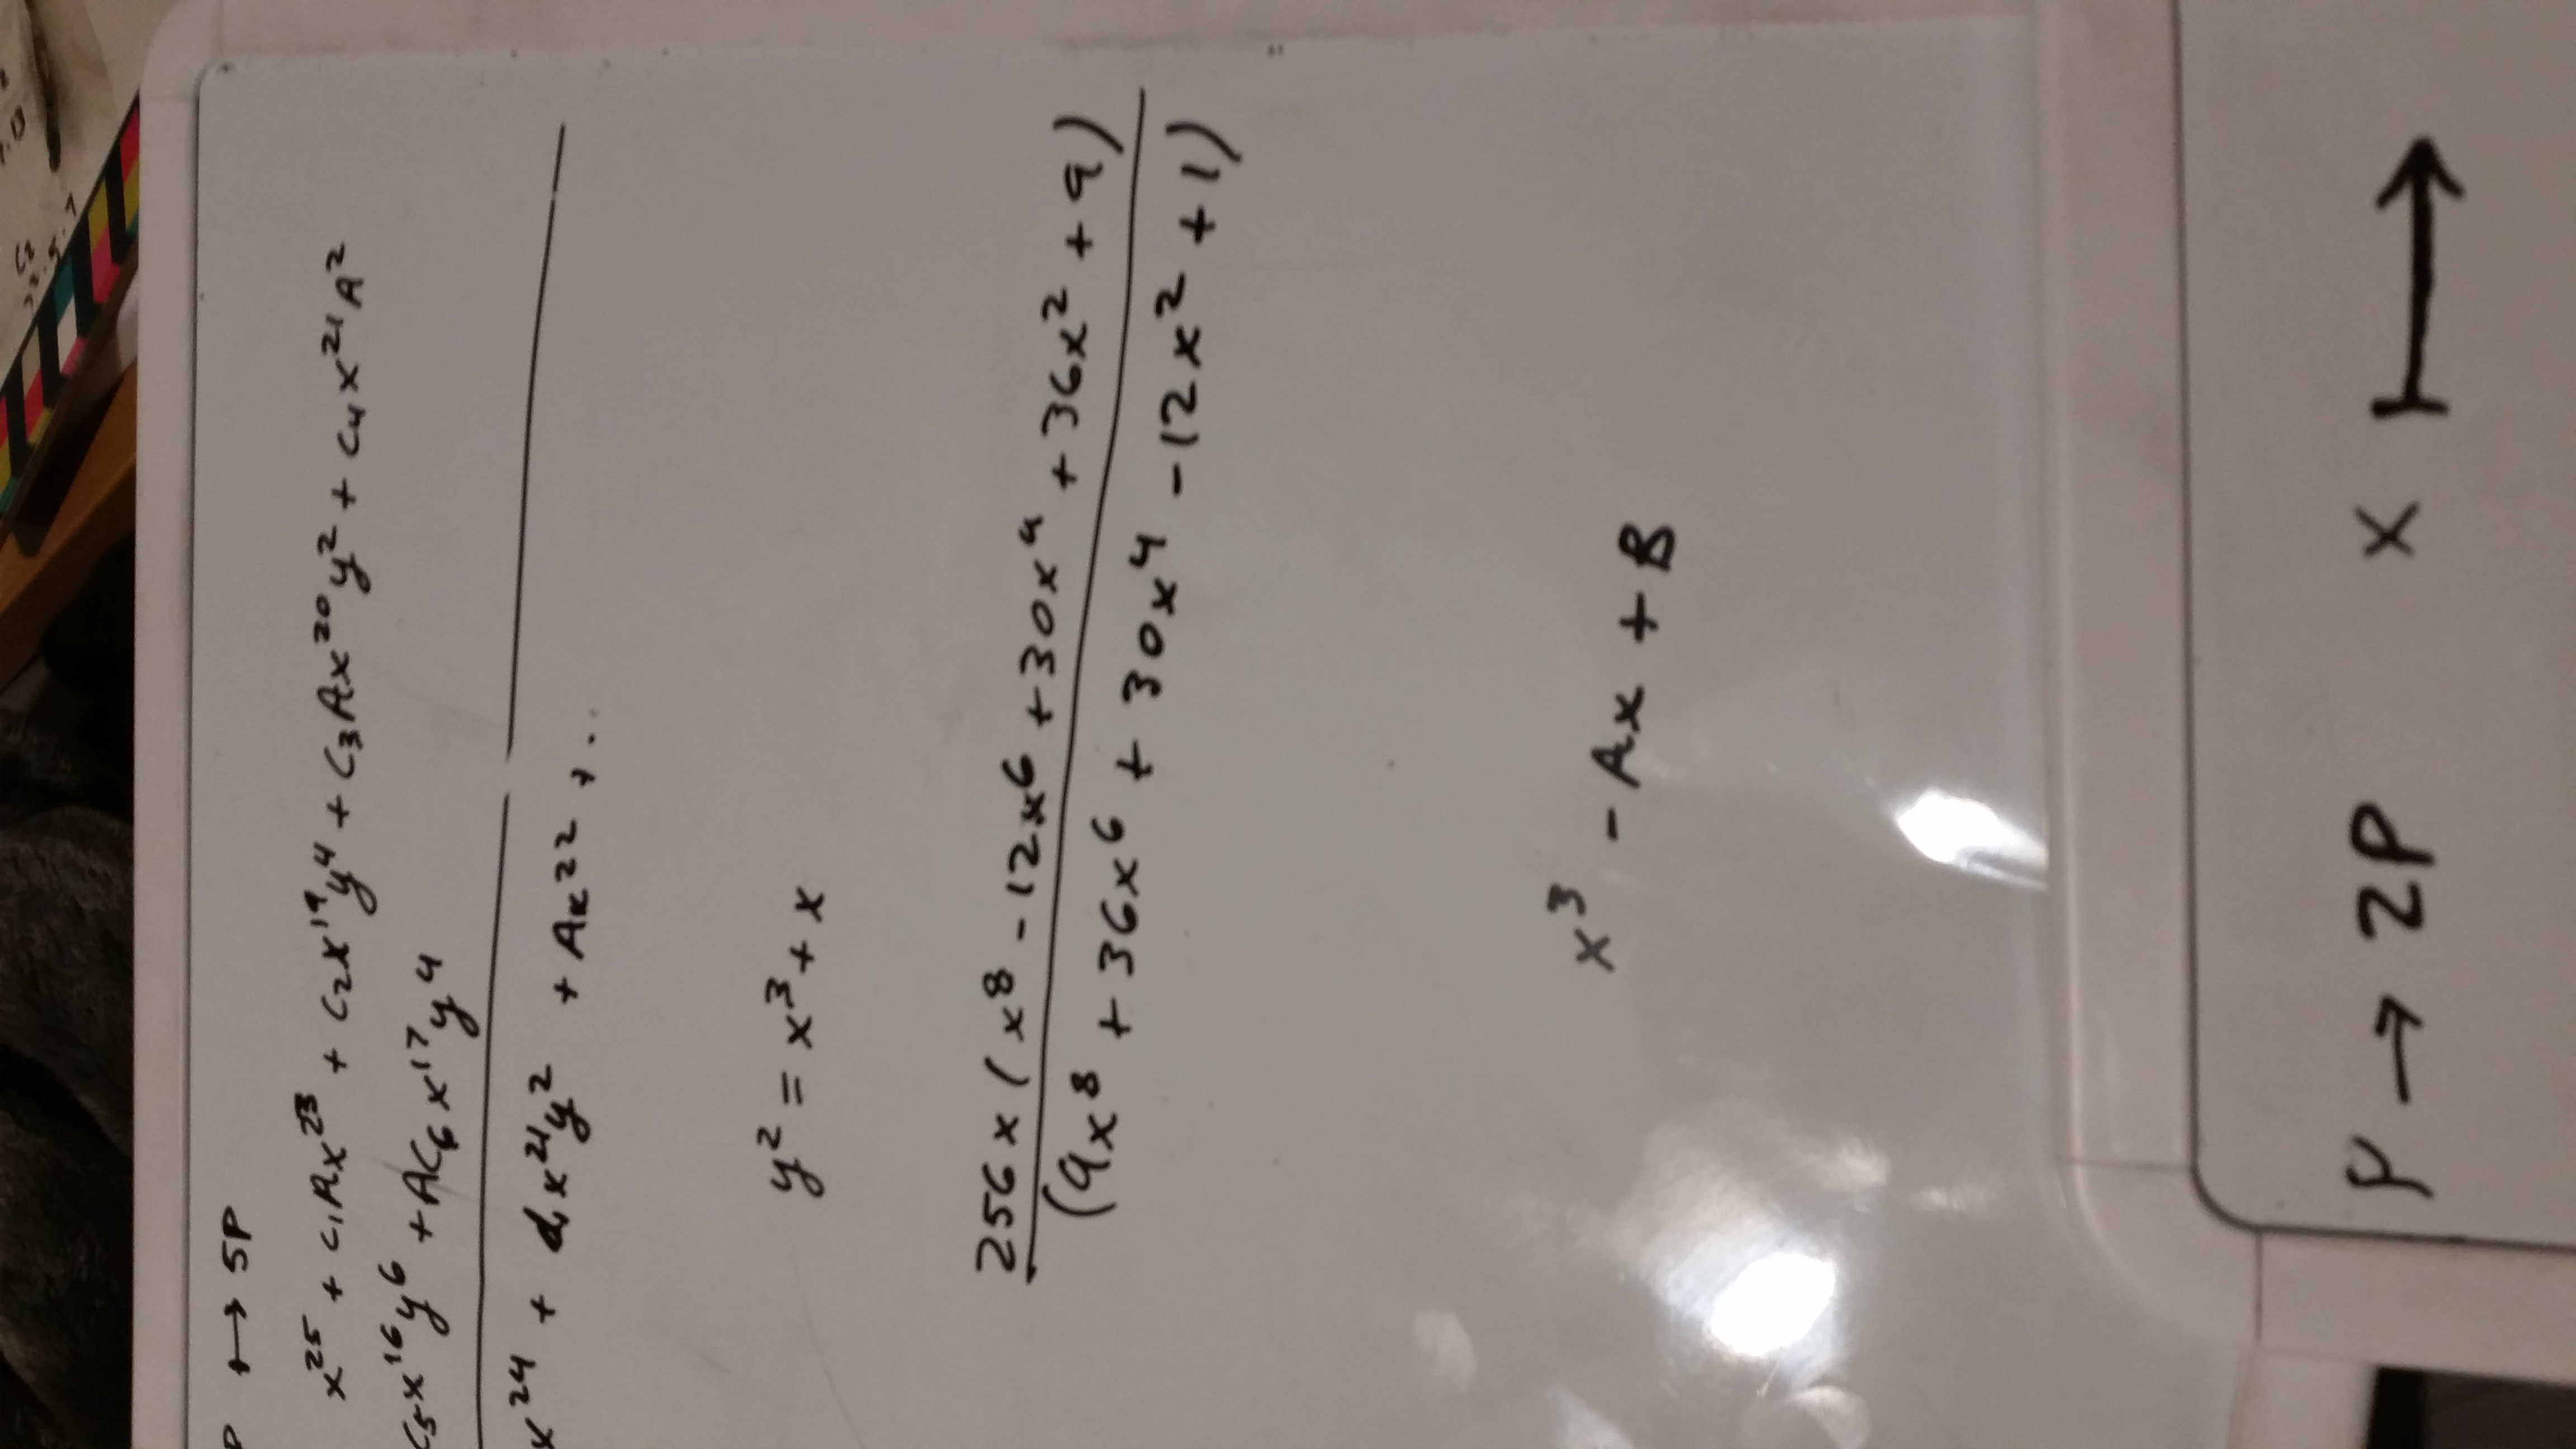 P ↦ 5P
x²⁵ + c₁Ax²³ + c₂x¹⁹y⁴ + c₃Ax²⁰y² + c₄x²¹A²
c₅x¹⁶y⁶ + Ac₆x¹⁷y⁴
x²⁴ + d₁x²¹y² + Ax²² + ..
y² = x³ + x
256x(x⁸ - 12x⁶ + 30x⁴ + 36x² + 9)
(9x⁸ + 36x⁶ + 30x⁴ - 12x² + 1)
x³ - Ax + B
P → 2P x ↦